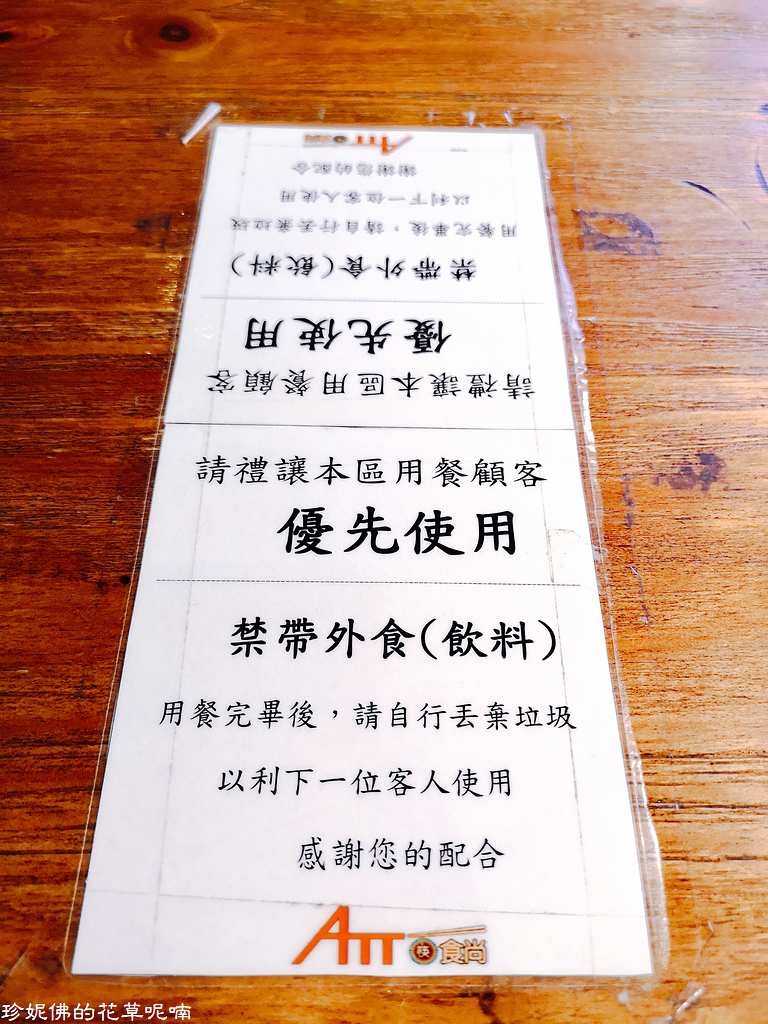 謝謝您的配合
以利下一位客人使用
用餐完畢後，請自行丟棄垃圾
禁帶外食(飲料)
優先使用
請禮讓本區用餐顧客
請禮讓本區用餐顧客
優先使用
禁帶外食(飲料)
用餐完畢後，請自行丟棄垃圾
以利下一位客人使用
感謝您的配合
ATT筷食尚
珍妮佛的花草呢喃